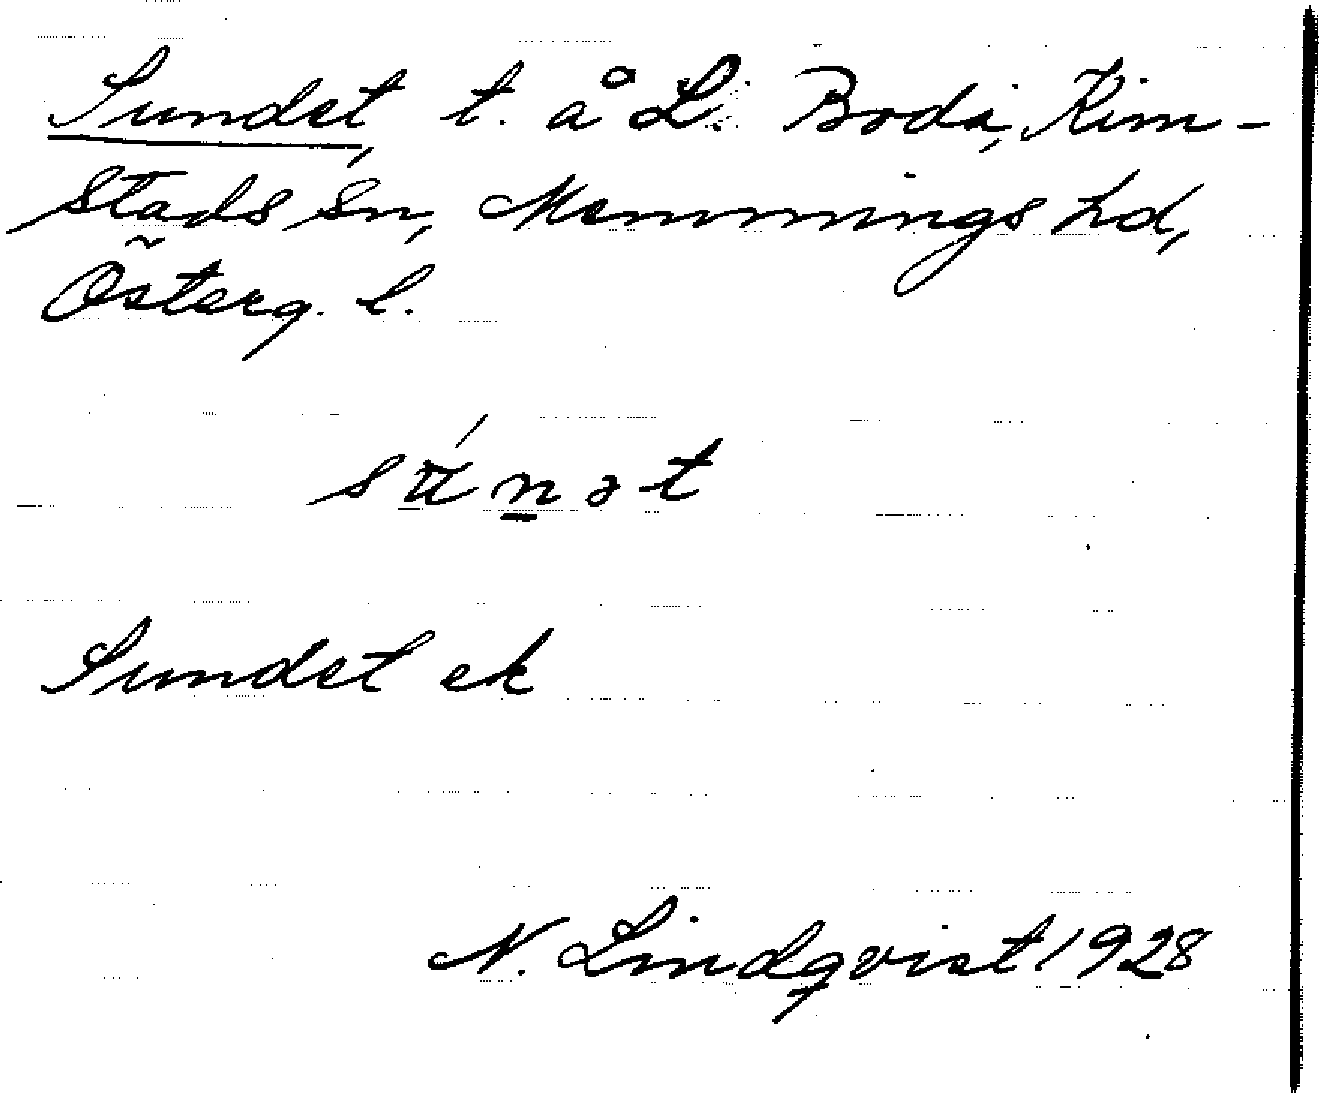 Sundet, t. å L. Boda, Kim-
stads sn, Memmings hd,
Österg. l.
sú̈n̲ət
Sundet ek
N. Lindqvist 1928